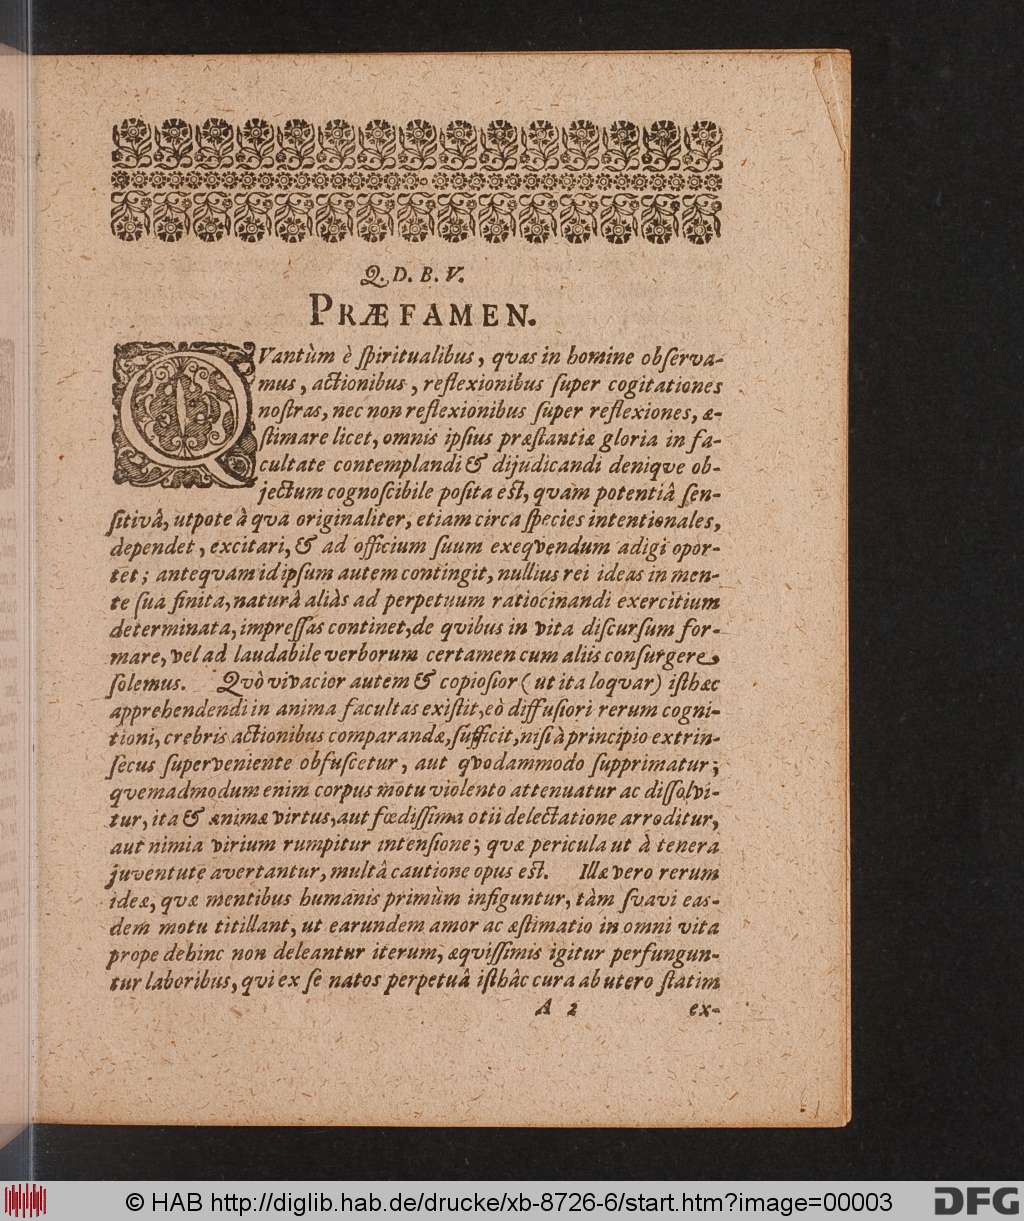 Q. D. B. V.
PRÆFAMEN.
QVantùm è ſpiritualibus, qvas in homine obſerva-
mus, actionibus, reflexionibus ſuper cogitationes
noſtras, nec non reflexionibus ſuper reflexiones, æ-
ſtimare licet, omnis ipſius præſtantiæ gloria in fa-
cultate contemplandi & dijudicandi deniqve ob-
jectum cognoſcibile poſita eſt, qvam potentiâ ſen-
ſitivâ, utpote à qva originaliter, etiam circa ſpecies intentionales,
dependet, excitari, & ad officium ſuum exeqvendum adigi opor-
tet; anteqvam id ipſum autem contingit, nullius rei ideas in men-
te ſua finita, naturâ aliàs ad perpetuum ratiocinandi exercitium
determinata, impreſſas continet, de qvibus in vita diſcurſum for-
mare, vel ad laudabile verborum certamen cum aliis conſurgere
ſolemus. Qvò vivacior autem & copioſior (ut ita loqvar) iſthæc
apprehendendi in anima facultas exiſtit, eò diffuſiori rerum cogni-
tioni, crebris actionibus comparandæ, ſufficit, niſi à principio extrin-
ſecus ſuperveniente obfuſcetur, aut qvodammodo ſupprimatur;
qvemadmodum enim corpus motu violento attenuatur ac diſſolvi-
tur, ita & animæ virtus, aut fœdiſſima otii delectatione arroditur,
aut nimia virium rumpitur intenſione; qvæ pericula ut à tenera
juventute avertantur, multâ cautione opus eſt. Illæ vero rerum
ideæ, qvæ mentibus humanis primùm infiguntur, tàm ſvavi eas-
dem motu titillant, ut earundem amor ac æſtimatio in omni vita
prope dehinc non deleantur iterum, æqviſſimis igitur perfungun-
tur laboribus, qvi ex ſe natos perpetuâ iſthâc cura ab utero ſtatim
A 2 ex-
© HAB http://diglib.hab.de/drucke/xb-8726-6/start.htm?image=00003
DFG